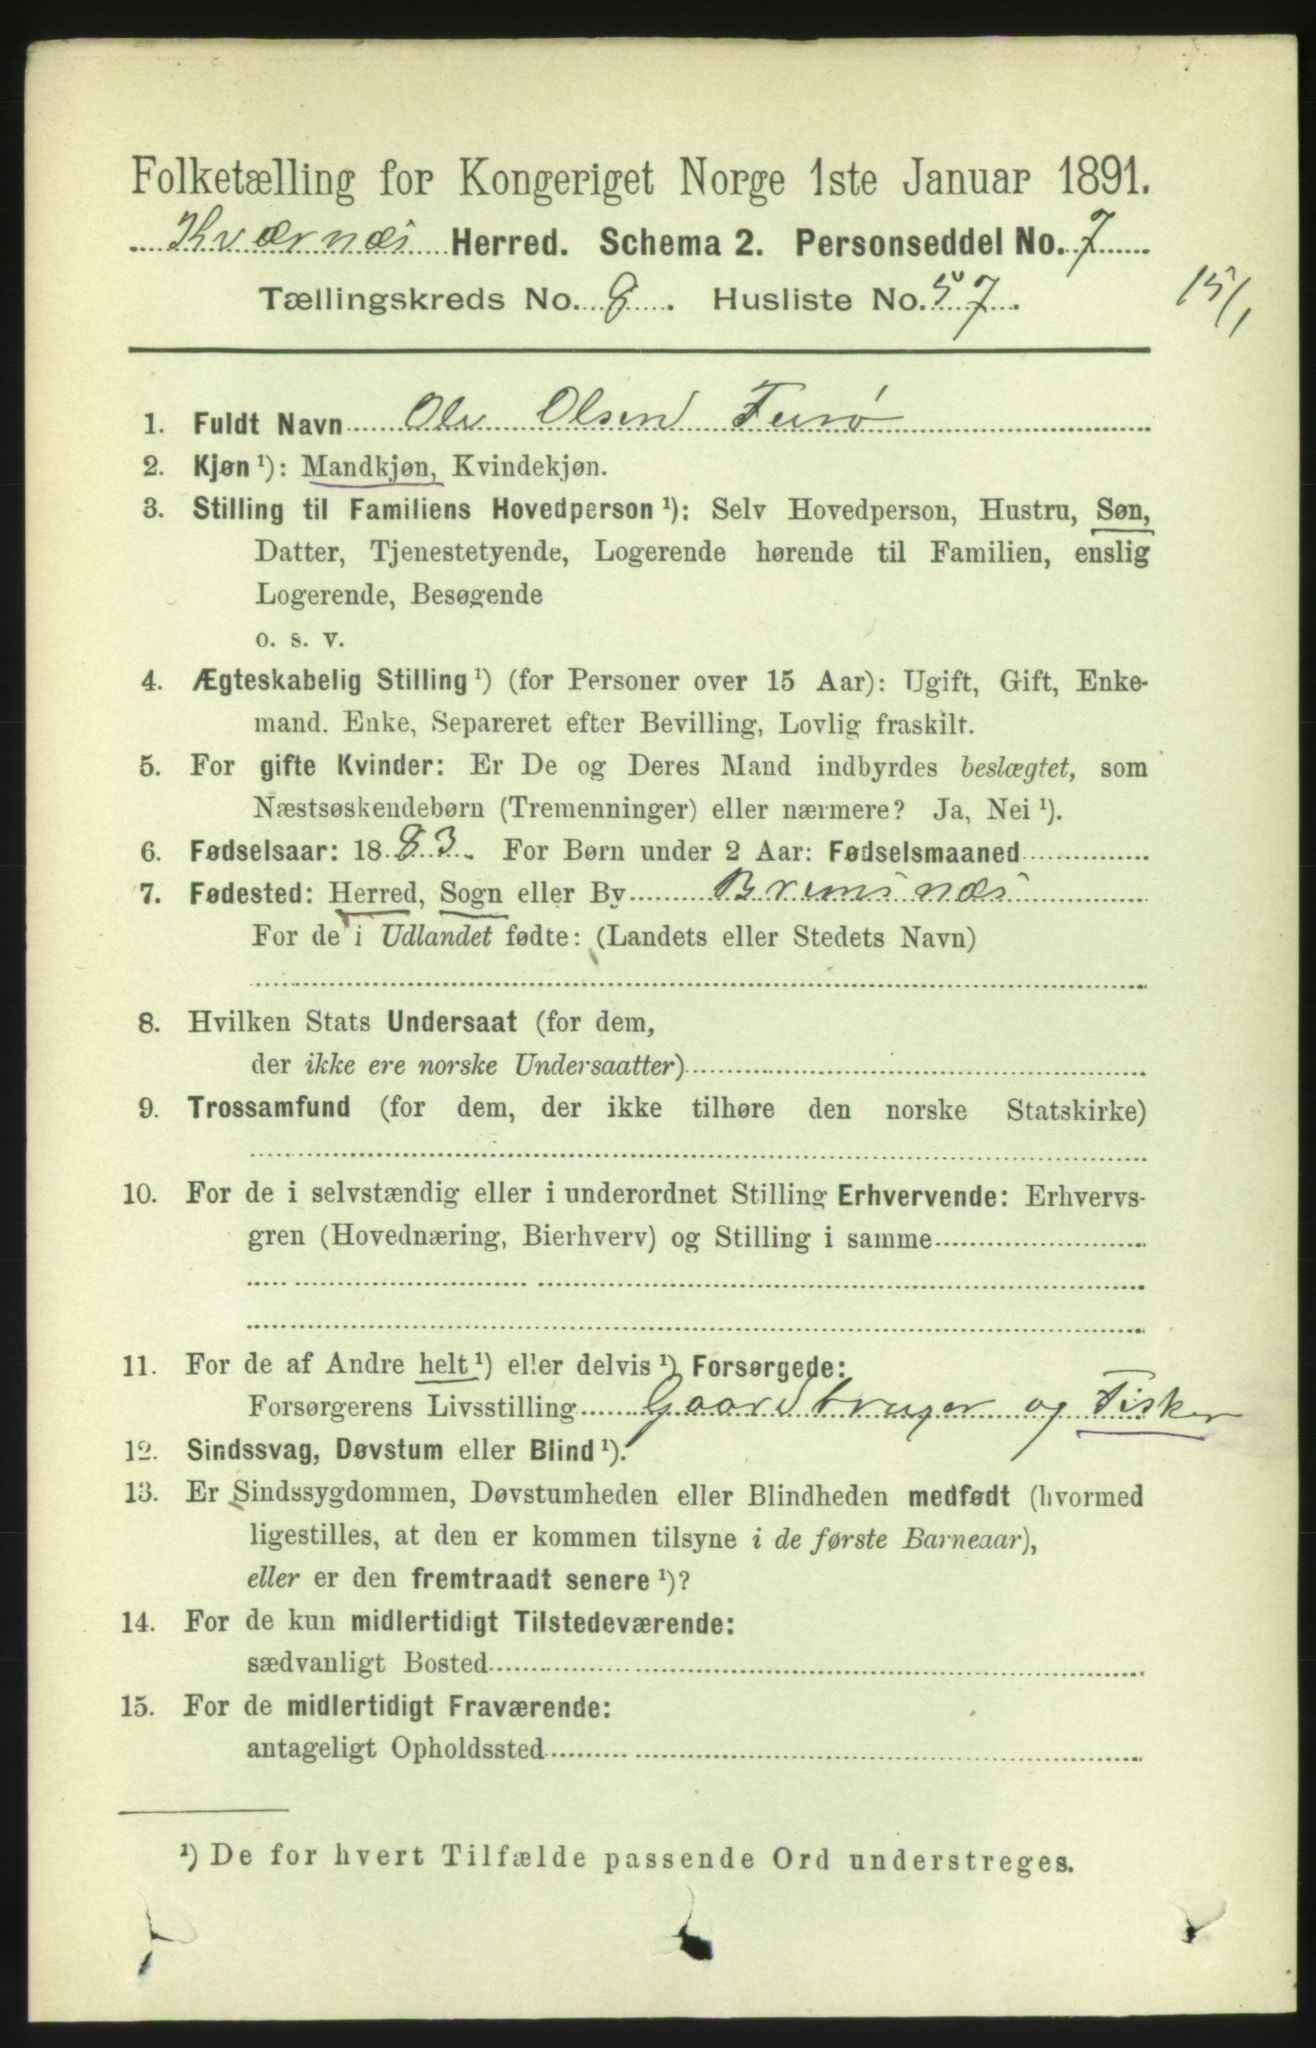 Folketælling for Kongeriget Norge 1ste Januar 1891.
Kværnæs Herred. Schema 2. Personseddel No. 7
Tællingskreds No. 8. Husliste No. 57.
15/1
1. Fuldt Navn Ole Olsen
2. Kjøn ¹): Mandkjøn, Kvindekjøn.
3. Stilling til Familiens Hovedperson ¹): Selv Hovedperson, Hustru, Søn,
Datter, Tjenestetyende, Logerende hørende til Familien, enslig
Logerende, Besøgende
o. s. v.
4. Ægteskabelig Stilling ¹) (for Personer over 15 Aar): Ugift, Gift, Enke-
mand. Enke, Separeret efter Bevilling, Lovlig fraskilt.
5. For gifte Kvinder: Er De og Deres Mand indbyrdes beslægtet, som
Næstsøskendebørn (Tremenninger) eller nærmere? Ja, Nei ¹).
6. Fødselsaar: 1883. For Børn under 2 Aar: Fødselsmaaned
7. Fødested: Herred, Sogn eller By Bremsnæs
For de i Udlandet fødte: (Landets eller Stedets Navn)
8. Hvilken Stats Undersaat (for dem,
der ikke ere norske Undersaatter)
9. Trossamfund (for dem, der ikke tilhøre den norske Statskirke)
10. For de i selvstændig eller i underordnet Stilling Erhvervende: Erhvervs-
gren (Hovednæring, Bierhverv) og Stilling i samme
11. For de af Andre helt ¹) eller delvis ¹) Forsørgede:
Forsørgerens Livsstilling Gaardbruger og Fisker
12. Sindssvag, Døvstum eller Blind ¹).
13. Er Sindssygdommen, Døvstumheden eller Blindheden medfødt (hvormed
ligestilles, at den er kommen tilsyne i de første Barneaar),
eller er den fremtraadt senere ¹)?
14. For de kun midlertidigt Tilstedeværende:
sædvanligt Bosted
15. For de midlertidigt Fraværende:
antageligt Opholdssted
¹) De for hvert Tilfælde passende Ord understreges.